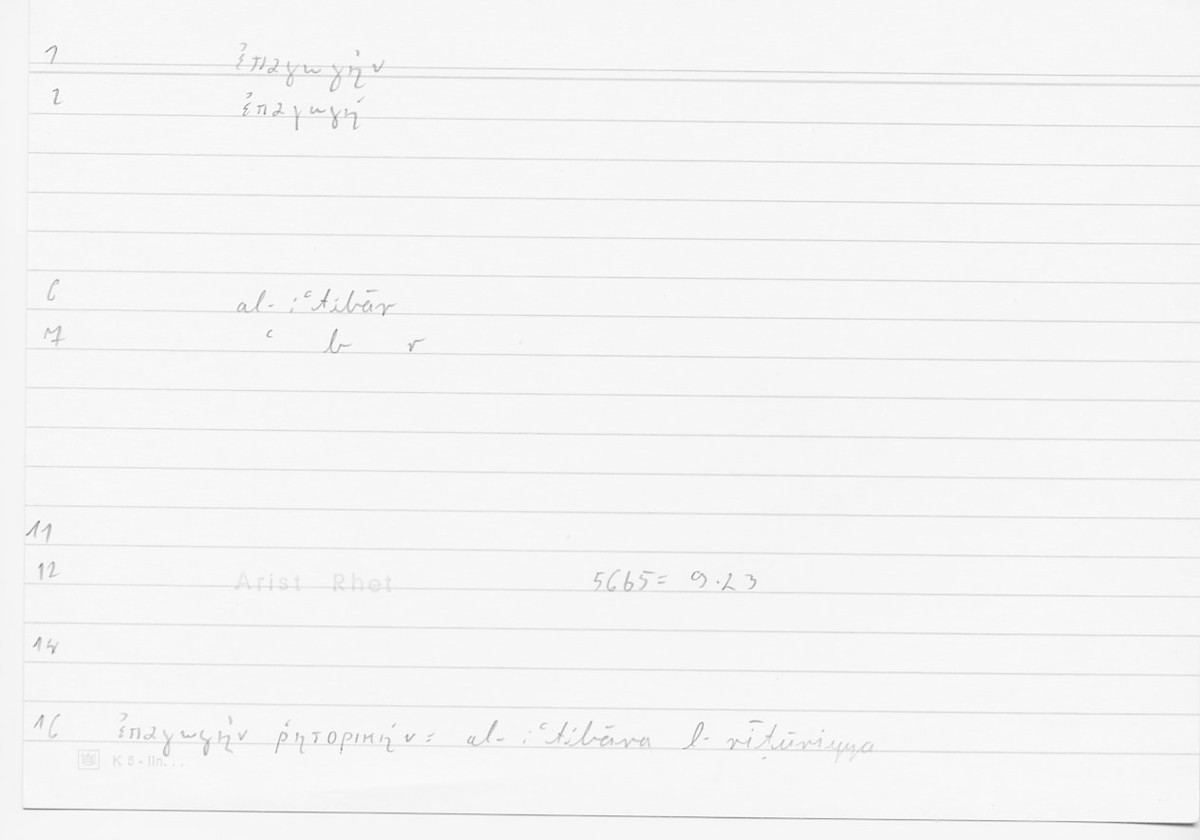 1 ἐπαγωγὴν
2 ἐπαγωγή
6 al-iʿtibār
7 ʿ b r
11
12 Arist Rhet 56b5= 9.23
14
16 ἐπαγωγὴν ῥητορικήν= al-iʿtibāra l-rīṭūriyya